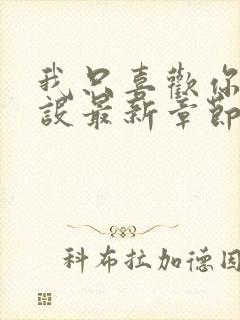 我只喜歡你
設最新章節
科布拉加德因